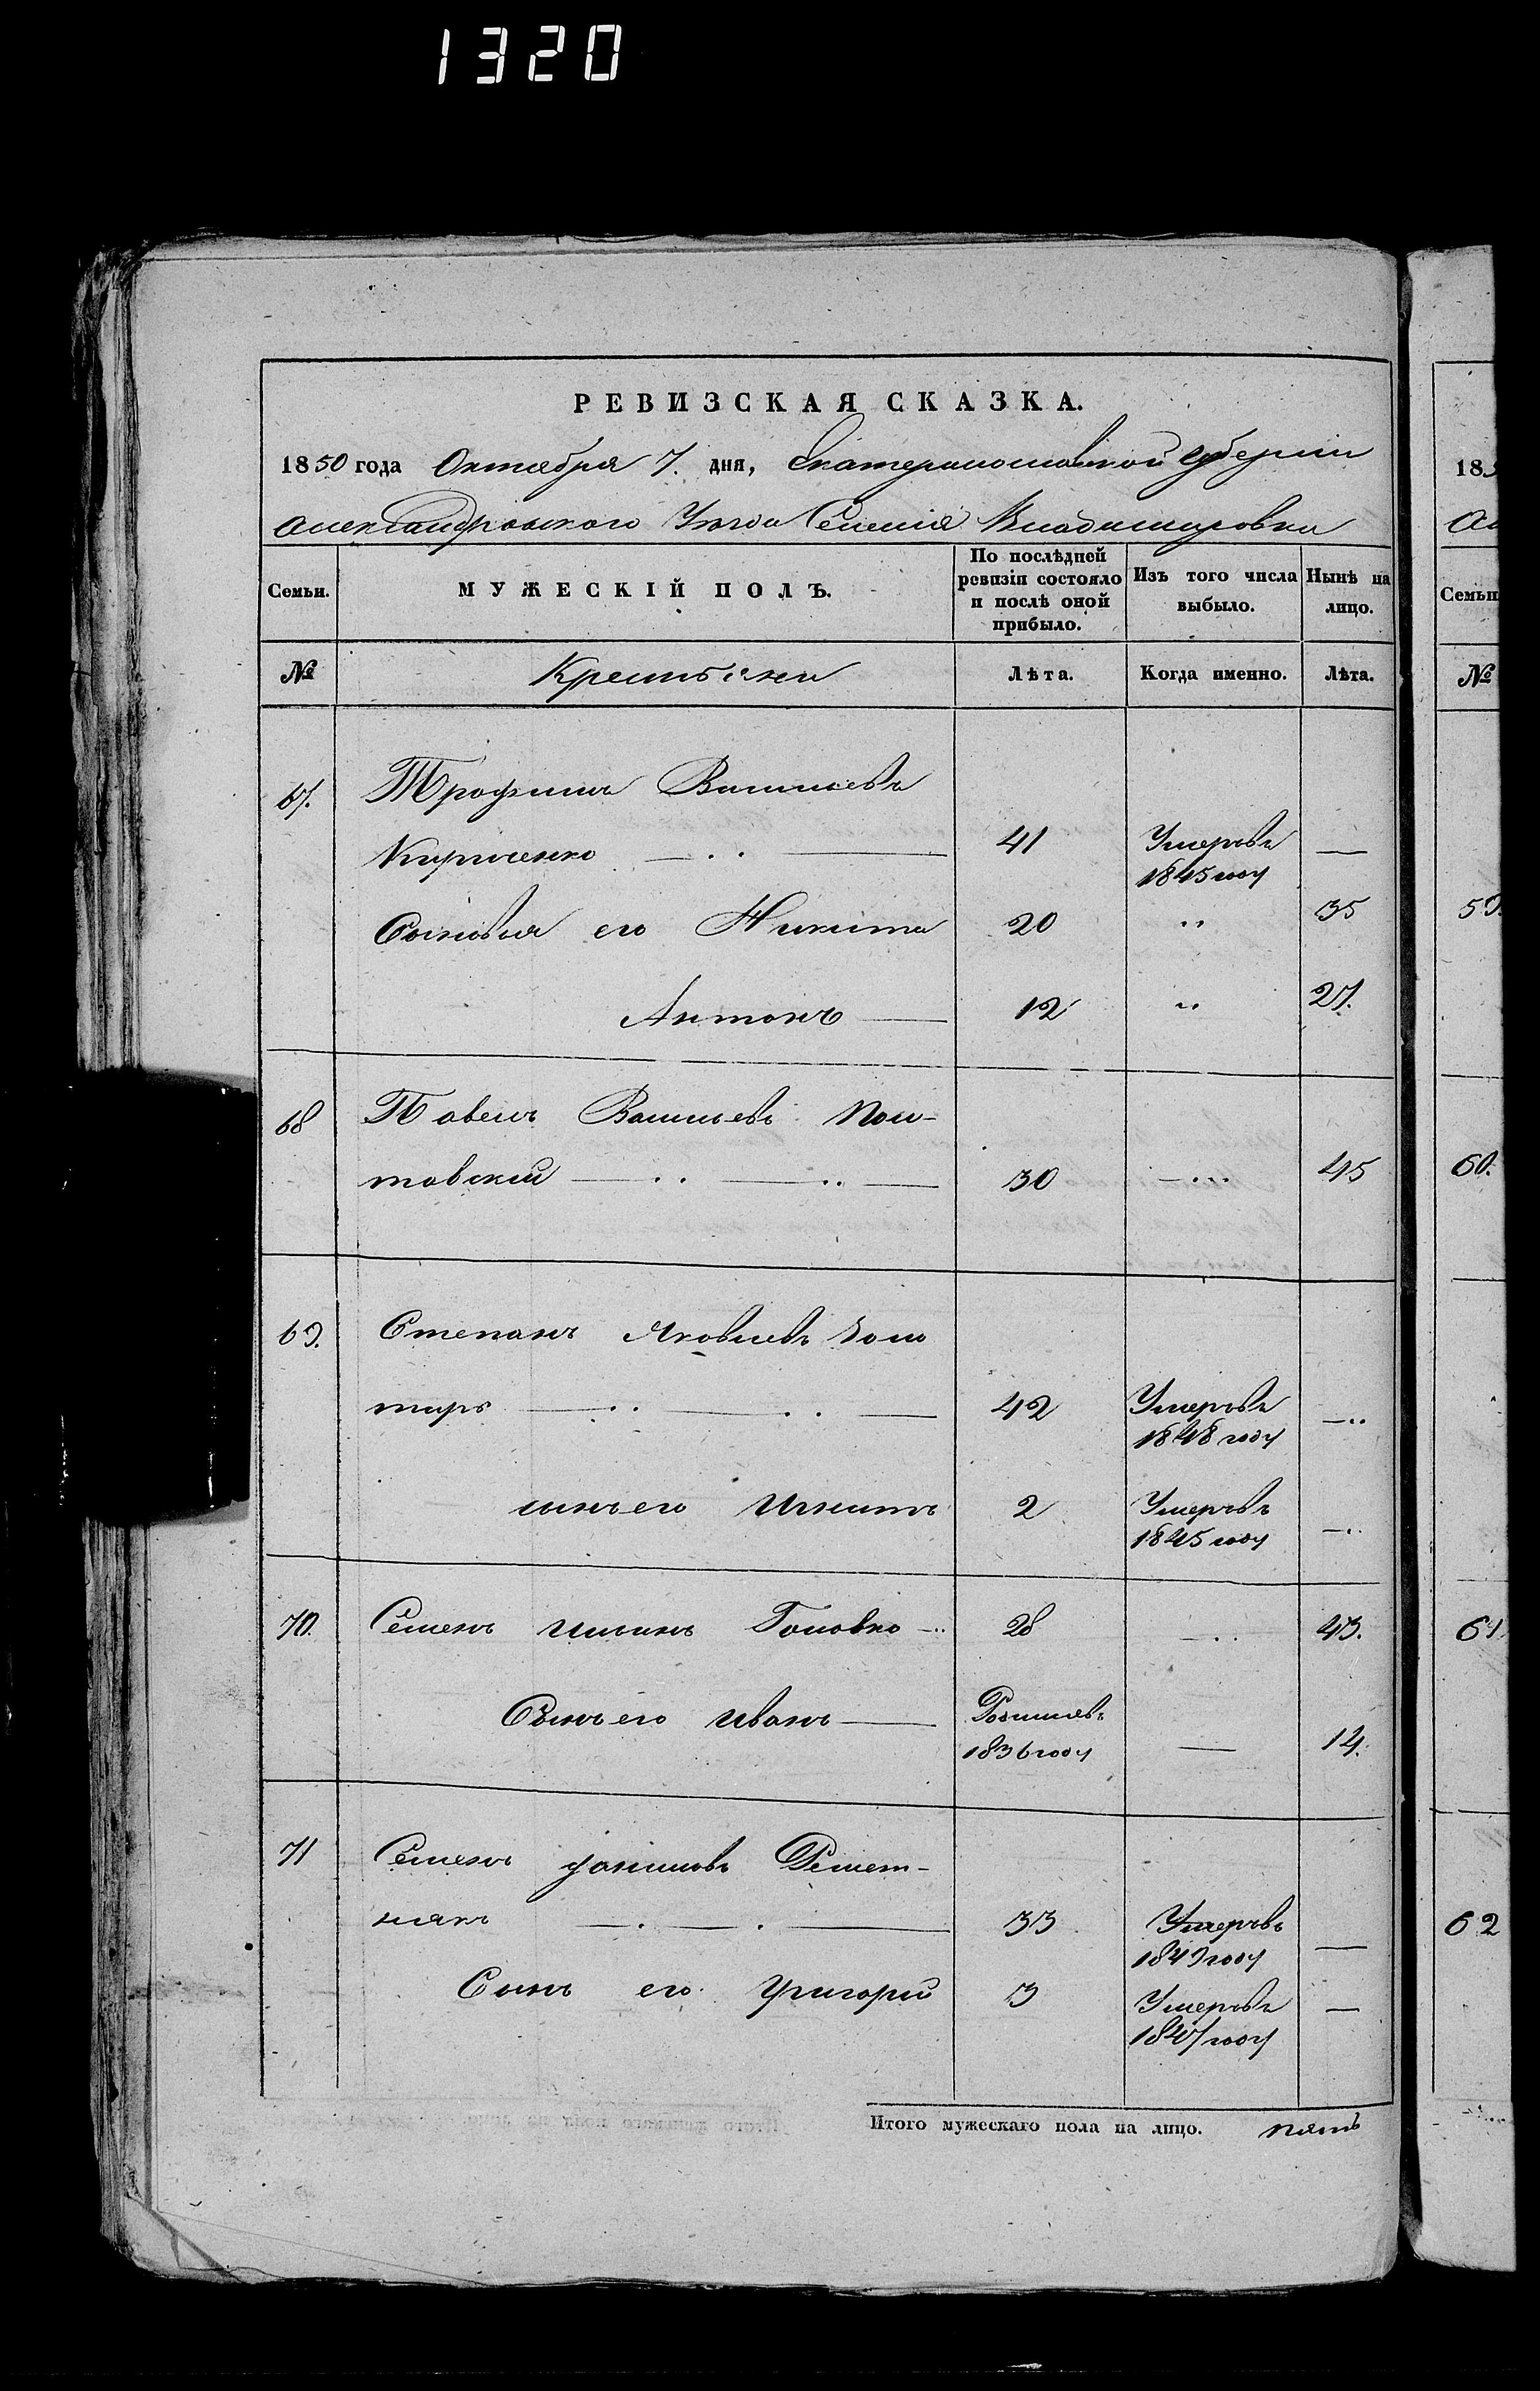 1320
РЕВИЗСКАЯ СКАЗКА.
1850 года Октября 7. дня, Екатеринославской Губернии
Александровского Уезда Селения Владимировки
Семьи. МУЖЕСКІЙ ПОЛЪ. По послѣдней ревизіи состояло и послѣ оной прибыло. Изъ того числа выбыло. Нынѣ на лицо.
№ Крестьяни Лѣта. Когда именно. Лѣта.
67. Трофимъ Васильевъ
Кириченко 41 Умеръ въ —
1845 году
Сыновья его Никита 20 " 35
Антонъ 12 " 27.
68 Павелъ Васильевъ Пол-
товский 30 45
69. Степанъ Яковлевъ Золо
тарь 42 Умеръ въ
1848 году
сынъ его Игнатъ 2 Умеръ въ
1845 году
70. Семенъ Ильинъ Головко 28 43.
Сынъ его Иванъ Родился въ — 14.
1836 году
71 Семенъ Решет-
някъ 33 Умеръ въ —
1849 году
Сынъ его Григорий 3 Умеръ въ —
1847 году
Итого мужескаго пола на лицо. пять
185
Ал
Семьи
№
59.
60.
61.
62